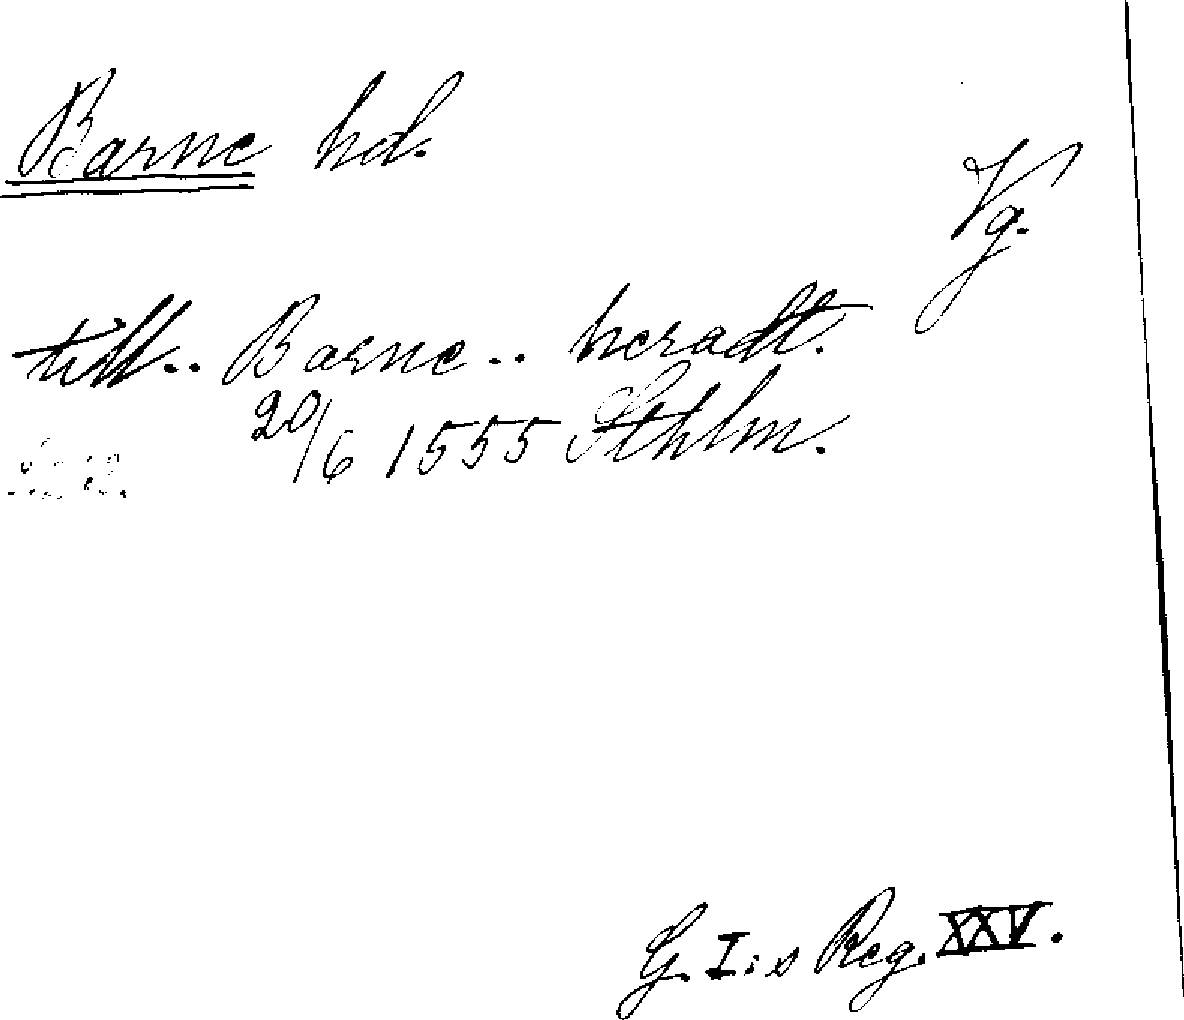 Barne hd.
Vg.
till.. Barne.. heradt.
20/6 1555 Sthlm.
G. I:s Reg. XXV.